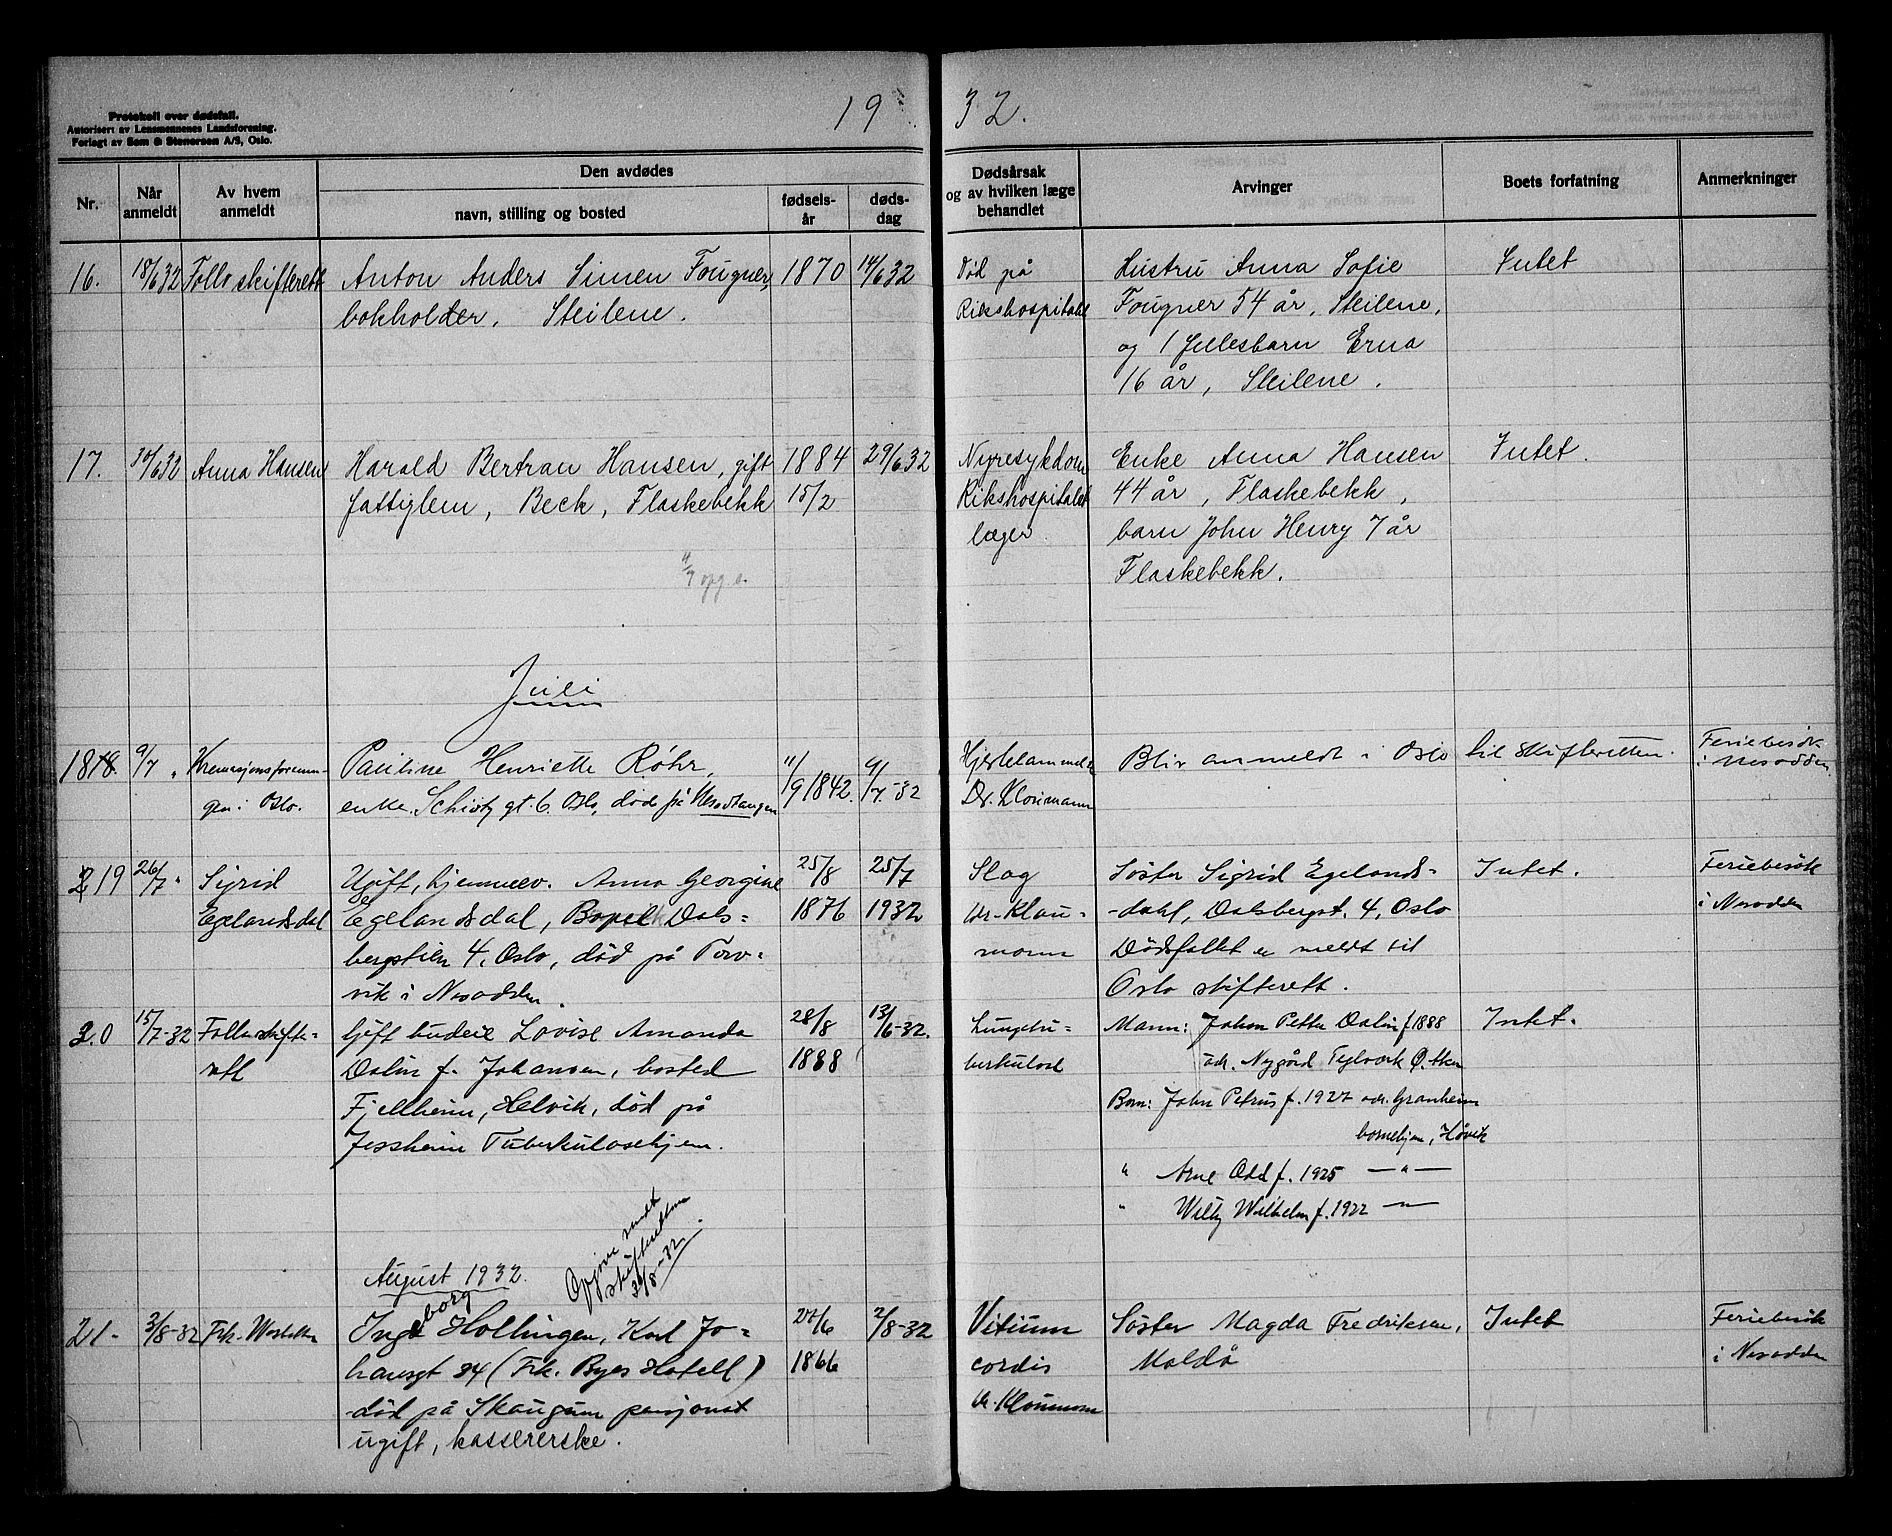 Protokoll over dødsfall.
Autorisert av Lensmennenes Landsforening.
Forlagt av Sem & Stenersen A/S, Oslo.
19 32.
Nr.
Når anmeldt
Av hvem anmeldt
Den avdødes
navn, stilling og bosted
fødsels-år
døds-dag
Dødsårsak
og av hvilken læge
behandlet
Arvinger
Boets forfatning
Anmerkninger
16. 18/6 32 Follo skifterett Anton Anders Simen Fougner, 1870 14/6 32
bokholder, Steilene.
Død på
Rikshospitalet
Hustru Anna Sofie
Fougner 54 år, Steilene,
og 1 fellesbarn Erna
16 år, Steilene.
Intet
17. 30/6 32 Anna Hansen Harald Bertran Hansen, gift 1884 29/6 32
fattiglem, Beck, Flaskebekk 15/2
4/7 opg. s.
Nyresykdom
Rikshospitalet
læger
Enke Anna Hansen
44 år, Flaskebekk,
barn John Henry 7 år
Flaskebekk.
Intet.
Juli
18. 9/7 Kremasjonsforenin-
gen i Oslo.
Pauline Henriette Røhr, 11/9 1842. 9/7-32
enke. Schivtz gt. 6. Oslo, død på Nesodtangen
Hjertelammelse
Dr. Kloumann
Blir anmeldt i Oslo til skifteretten.
Feriebesøk
i Nesodden
19 26/7. Sigrid
Egelandsdal
Ugift, hjemmev. Anna Georgine 25/8 25/7
Egelandsdal, Bopel Dals- 1876 1932
bergstien 4, Oslo, død på Torv-
vik i Nesodden.
Slag
Dr. Klou-
mann
Søster Sigrid Egelands-
-dahl, Dalsbergst. 4, Oslo
Dødsfallet er meldt til
Oslo skifterett.
Intet.
Feriebesøk
i Nesodden
20 15/7-32 Follo skifte-
rett
Gift budeie Lovise Amanda 28/8 13/6-32.
Dalin f. Johansen, bosted 1888
Fjellheim, Helvik, død på
Jessheim Tuberkulosehjem.
Lungetu-
berkulose
Mann: Johan Petter Dalin f. 1888
adr. Nygård Teglverk Ø. Aker
Barn: John Petrus f. 1927 adr. Granheim
barnehjem, Høvik
" Arne Odd f. 1925 — " —
" Willy Wilhelm f. 1922 — " —
Intet.
Opgave sendt
skifteretten
3/8-32.
August 1932.
21- 3/8-32 Frk.
Ingeborg Hollingen, Karl Jo- 27/6 2/8-32
hansgt 34 (Frk. Byes Hotell) 1866
død på Skaugum pensjonat
ugift, kassererske.
Vitium
cordis
Dr. Kloumann
Søster Magda Fredriksen,
Moldå
Intet
Feriebesøk
i Nesodden